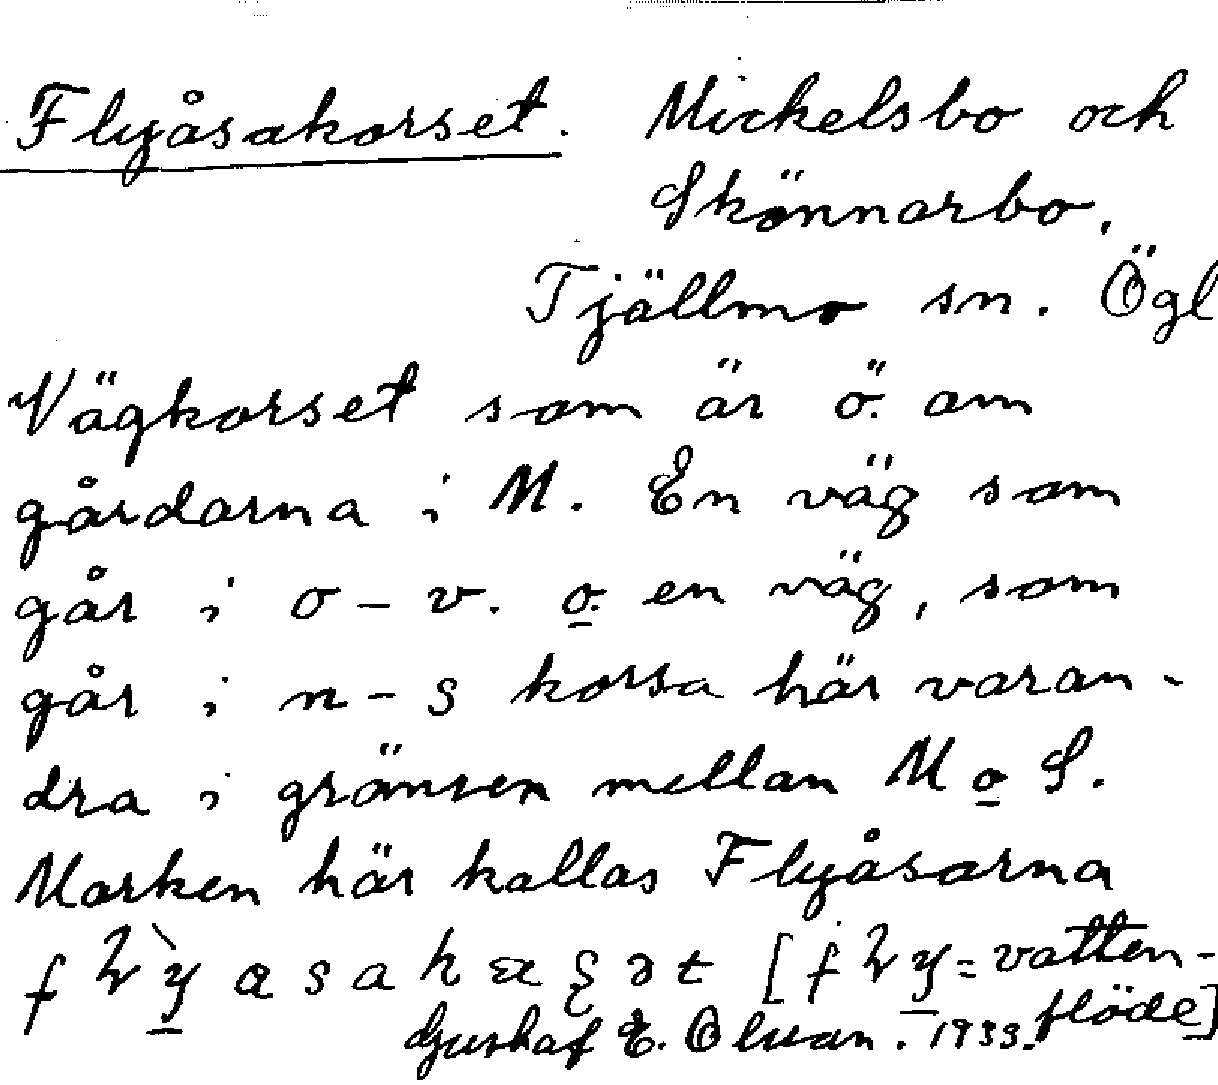 Flyåsakorset. Mickelsbo och
Skönnarbo.
Tjällmo sn. Ögl
Vägkorset som är ö. om
gårdarna i M. En väg som
går i o – v. o. en väg, som
går i n – s korsa här varan-
dra i gränsen mellan M o S.
Marken här kallas Flyåsarna
[ = vatten-
flöde]
Gustaf E. Olsson. 1933.